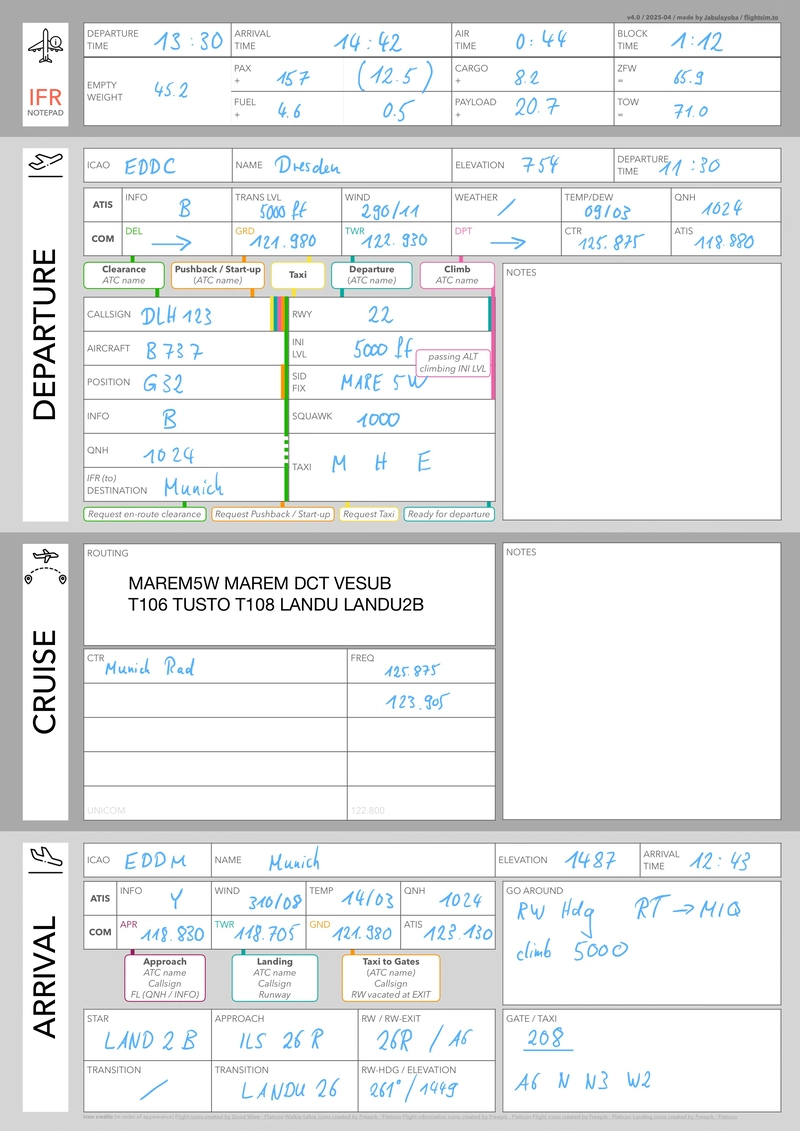 v4.0 / 2025-04 / made by Jabulayoba / flightsim.to
IFR
NOTEPAD
DEPARTURE TIME 13:30
ARRIVAL TIME 14:42
AIR TIME 0:44
BLOCK TIME 1:12
EMPTY WEIGHT 45.2
PAX + 157 (12.5)
CARGO + 8.2
ZFW = 65.9
FUEL + 4.6 0.5
PAYLOAD + 20.7
TOW = 71.0
DEPARTURE
ICAO EDDC
NAME Dresden
ELEVATION 754
DEPARTURE TIME 11:30
ATIS
INFO B
TRANS LVL 5000 ft
WIND 290/11
WEATHER /
TEMP/DEW 09/03
QNH 1024
COM
DEL →
GRD 121.980
TWR 122.930
DPT →
CTR 125.875
ATIS 118.880
Clearance
ATC name
Pushback / Start-up
(ATC name)
Taxi
Departure
(ATC name)
Climb
ATC name
NOTES
CALLSIGN DLH 123
RWY 22
AIRCRAFT B737
INI LVL 5000 ft
passing ALT
climbing INI LVL
POSITION G32
SID FIX MARE 5W
INFO B
SQUAWK 1000
QNH 1024
TAXI M H E
IFR (to)
DESTINATION Munich
Request en-route clearance
Request Pushback / Start-up
Request Taxi
Ready for departure
CRUISE
ROUTING
MAREM5W MAREM DCT VESUB
T106 TUSTO T108 LANDU LANDU2B
NOTES
CTR Munich Rad
FREQ 125.875
123.905
UNICOM 122.800
ARRIVAL
ICAO EDDM
NAME Munich
ELEVATION 1487
ARRIVAL TIME 12:43
ATIS
INFO Y
WIND 310/08
TEMP 14/03
QNH 1024
COM
APR 118.830
TWR 118.705
GND 121.980
ATIS 123.130
GO AROUND
RW Hdg RT → MIQ
climb 5000
Approach
ATC name
Callsign
FL (QNH / INFO)
Landing
ATC name
Callsign
Runway
Taxi to Gates
(ATC name)
Callsign
RW vacated at EXIT
STAR LAND 2 B
APPROACH ILS 26 R
RW / RW-EXIT 26R / A6
GATE / TAXI
208
A6 N N3 W2
TRANSITION /
TRANSITION LANDU 26
RW-HDG / ELEVATION 261° / 1449